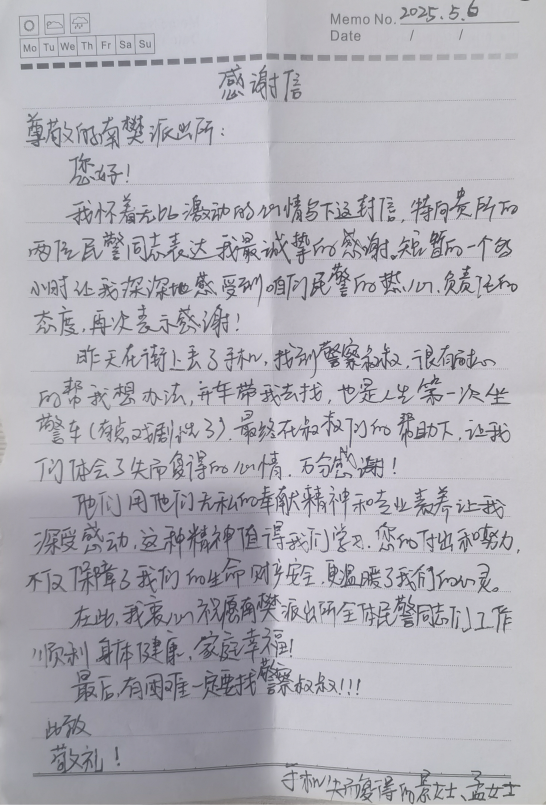 Memo No. 2025.5.6
Mo Tu We Th Fr Sa Su
Date / /
感谢信
尊敬的南樊派出所：
您好！
我怀着无比激动的心情写下这封信，特向贵所的
两位民警同志表达我最诚挚的感谢，短暂的一个多
小时让我深深地感受到咱们民警的热心，负责任的
态度，再次表示感谢！
昨天在街上丢了手机，找到警察叔叔，很有耐心
的帮我想办法，开车带我去找，也是人生第一次坐
警车（有点戏剧性了），最终在叔叔们的帮助下，让我
们体会了失而复得的心情，万分感谢！
他们用他们无私的奉献精神和专业素养让我
深受感动，这种精神值得我们学习，您的付出和努力，
不仅保障了我们的生命财产安全，更温暖了我们的心灵。
在此，我衷心祝愿南樊派出所全体民警同志们工作
顺利 身体健康，家庭幸福！
最后，有困难一定要找警察叔叔！！！
此致
敬礼！
手机失而复得的景女士、孟女士